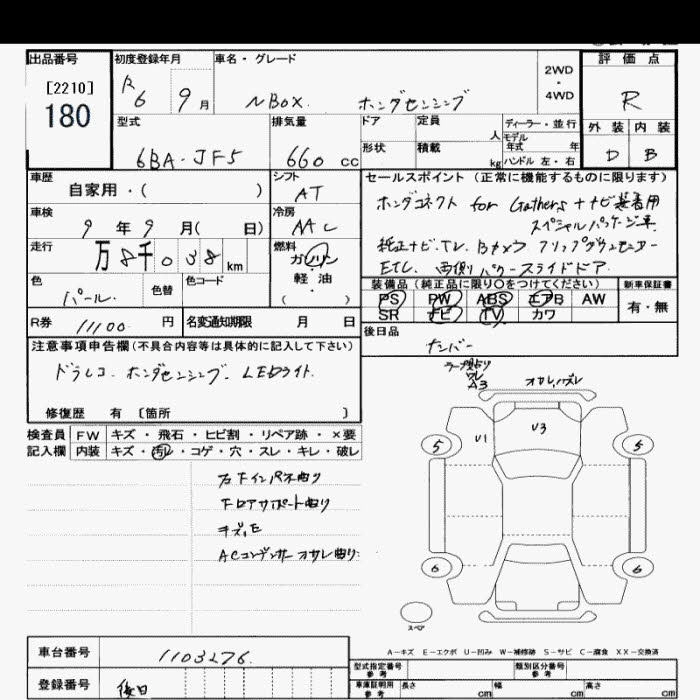 出品番号
[2210]
180
初度登録年月
R6 9月
車名・グレード
NBOX. ホンダセンシング
2WD
・
4WD
評価点
R
外装 内装
D B
型式
6BA-JF5
排気量
660 cc
ドア
定員
人
形状
積載
kg
ディーラー・並行
モデル
年式 年
ハンドル 左・右
車歴
自家用・( )
シフト
AT
車検
9年9月( 日)
冷房
AAC
走行
万8千038km
燃料
ガソリン
軽・油
( )
色
パール.
色替
色コード
R券
11100 円
名変通知期限 月 日
セールスポイント(正常に機能するものに限ります)
ホンダコネクト for Gathers+ナビ装着用
スペシャルパッケージ車
純正ナビ.TV. Bカメラ フリップダウンモニター
ETC. 両側パワースライドドア
装備品(純正品に限り〇をつけてください)
PS PW ABS エアB AW
SR ナビ TV カワ
新車保証書
有・無
後日品
ナンバー
注意事項申告欄(不具合内容等は具体的に記入して下さい)
ドラレコ ホンダセンシング LEDライト
修復歴 有〔箇所 〕
検査員
記入欄
FW キズ・飛石・ヒビ割・リペア跡・×要
内装 キズ・汚レ・コゲ・穴・スレ・キレ・破レ
右Fインパネ曲り
Fロアサポート曲り
キズ,E
ACコンデンサーオサレ曲り
ワレ
A3
オサレ,ズレ
U1
U3
5
5
6
6
スペア
A-キズ E-エクボ U-凹み W-補修跡 S-サビ C-腐食 XX-交換済
車台番号
1103276
登録番号
後日
型式指定番号
参考
類別区分番号
参考
車庫証明用
参考
長さ cm
幅 cm
高さ cm